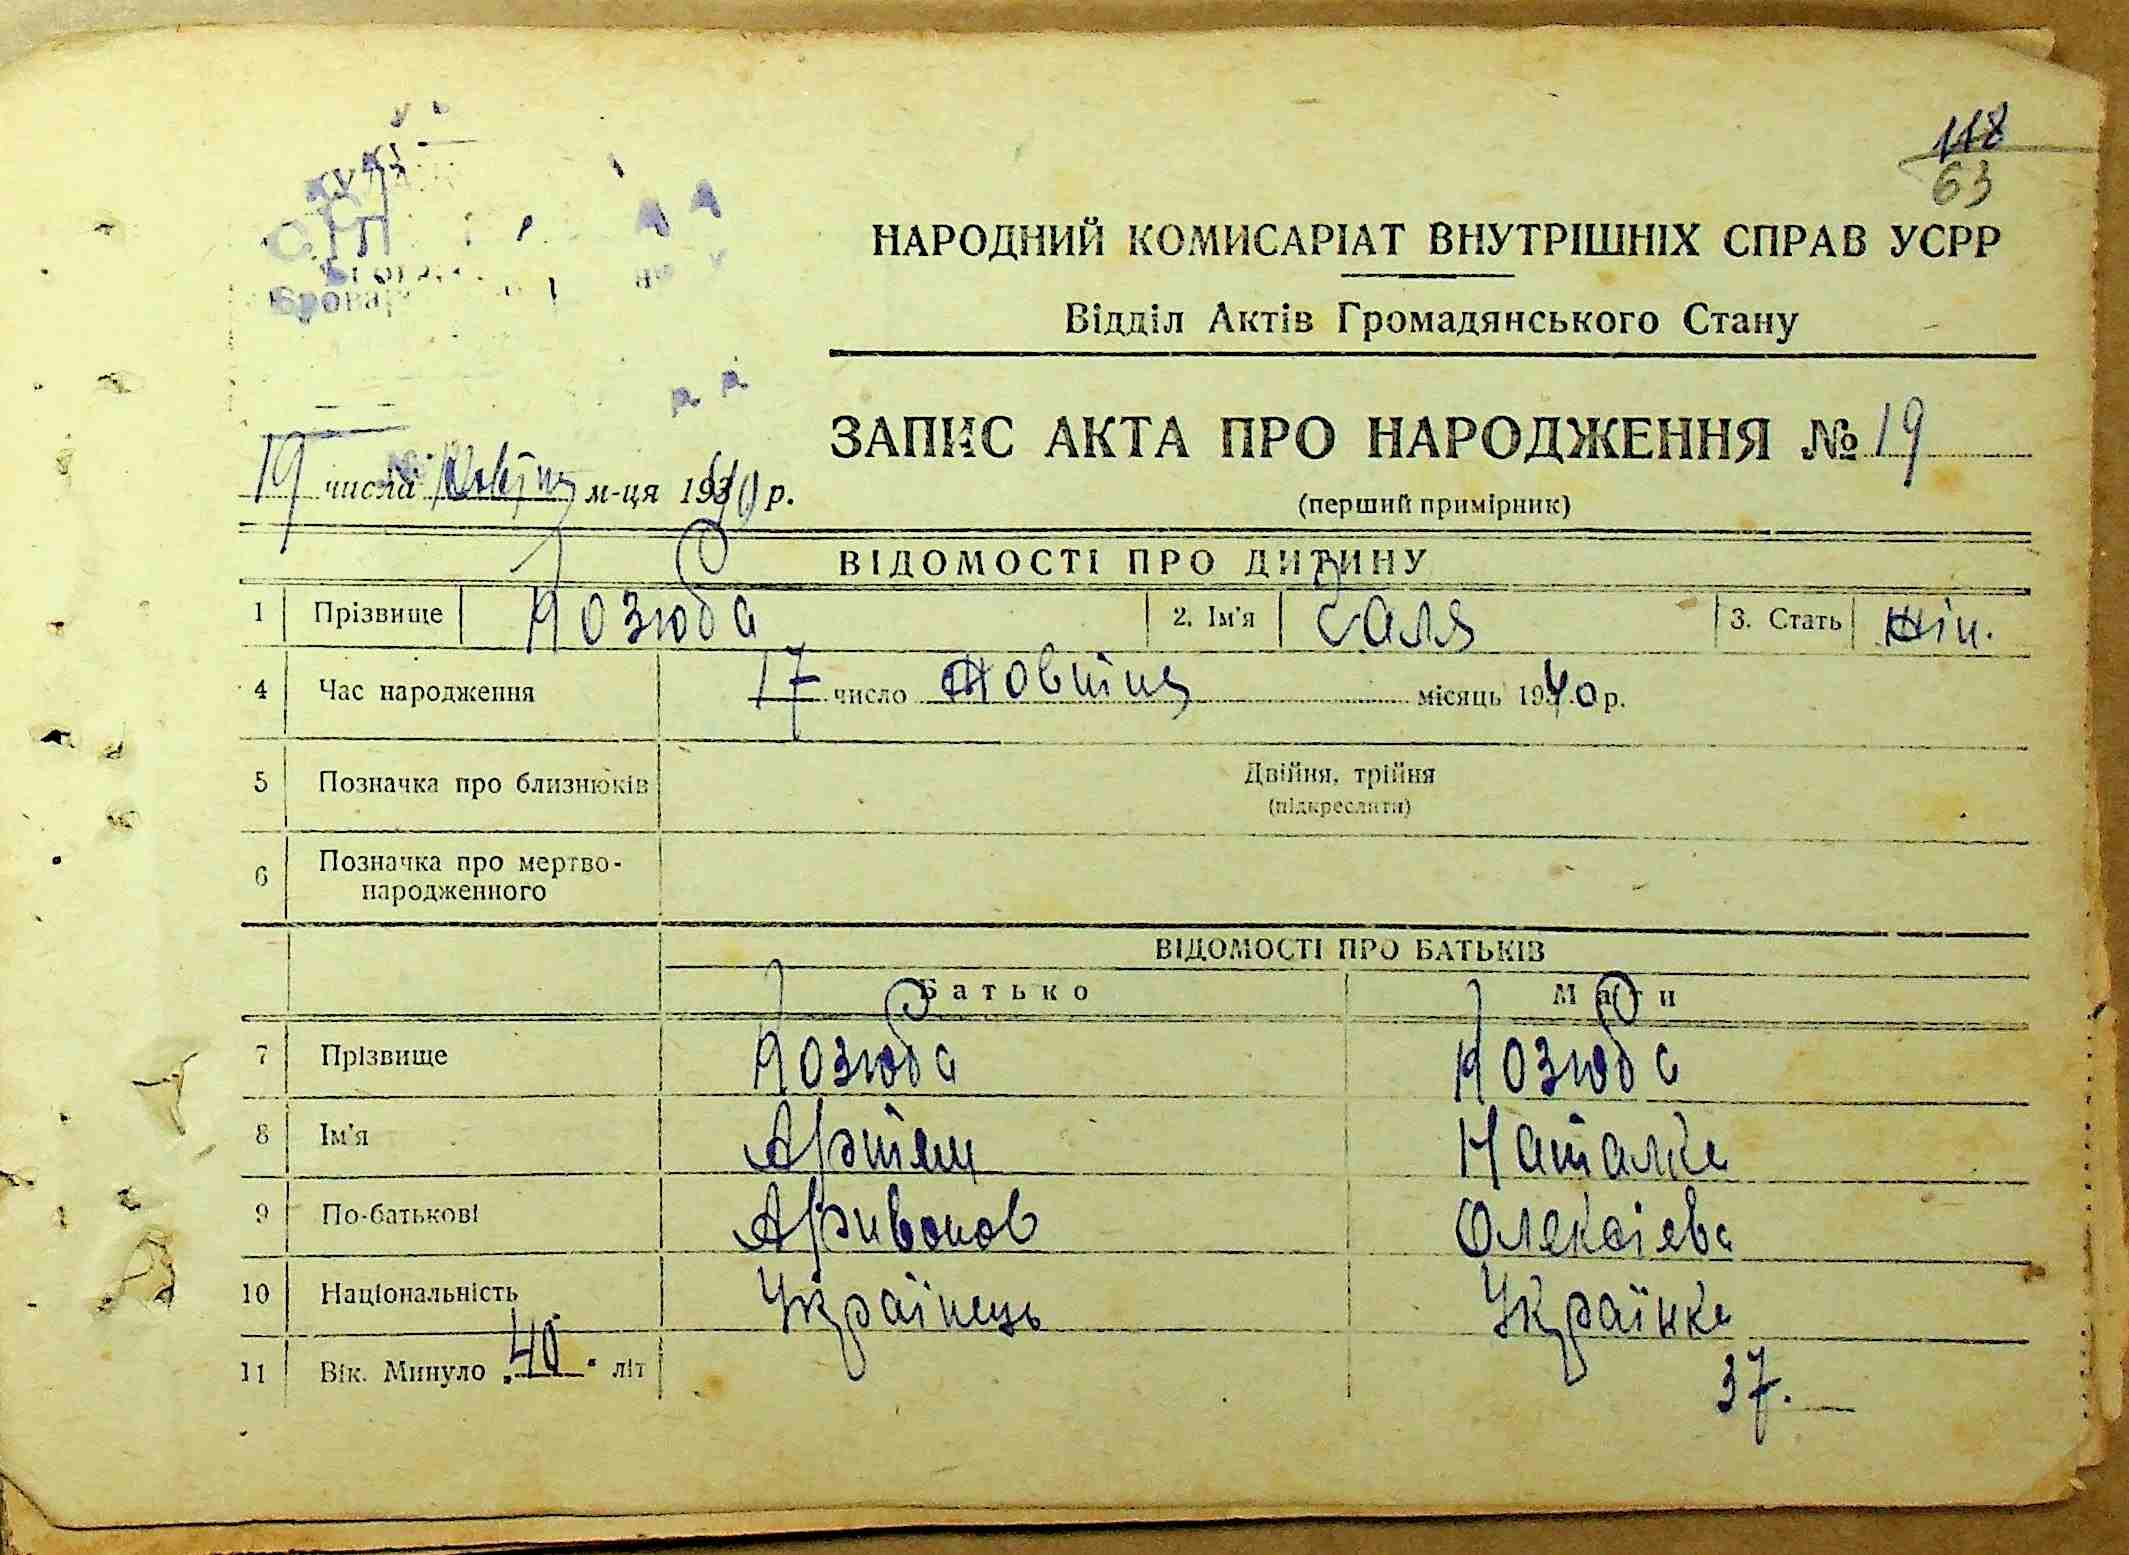 118
63
НАРОДНИЙ КОМИСАРІАТ ВНУТРІШНІХ СПРАВ УСРР
Відділ Актів Громадянського Стану
ЗАПИС АКТА ПРО НАРОДЖЕННЯ № 19
(перший примірник)
19 числа м-ця 1940 р.
ВІДОМОСТІ ПРО ДИТИНУ
1 Прізвище Козюба 2. Ім'я Галя 3. Стать жін.
4 Час народження 17 число Жовтіня місяць 1940 р.
5 Позначка про близнюків Двійня, трійня
(підкреслити)
6 Позначка про мертво-
народженного
ВІДОМОСТІ ПРО БАТЬКІВ
Батько Мати
7 Прізвище Козюба Козюба
8 Ім'я Артьем Наталка
9 По-батькові Аривонов Олексієва
10 Національність Українець Українка
11 Вік. Минуло 40. літ 37.